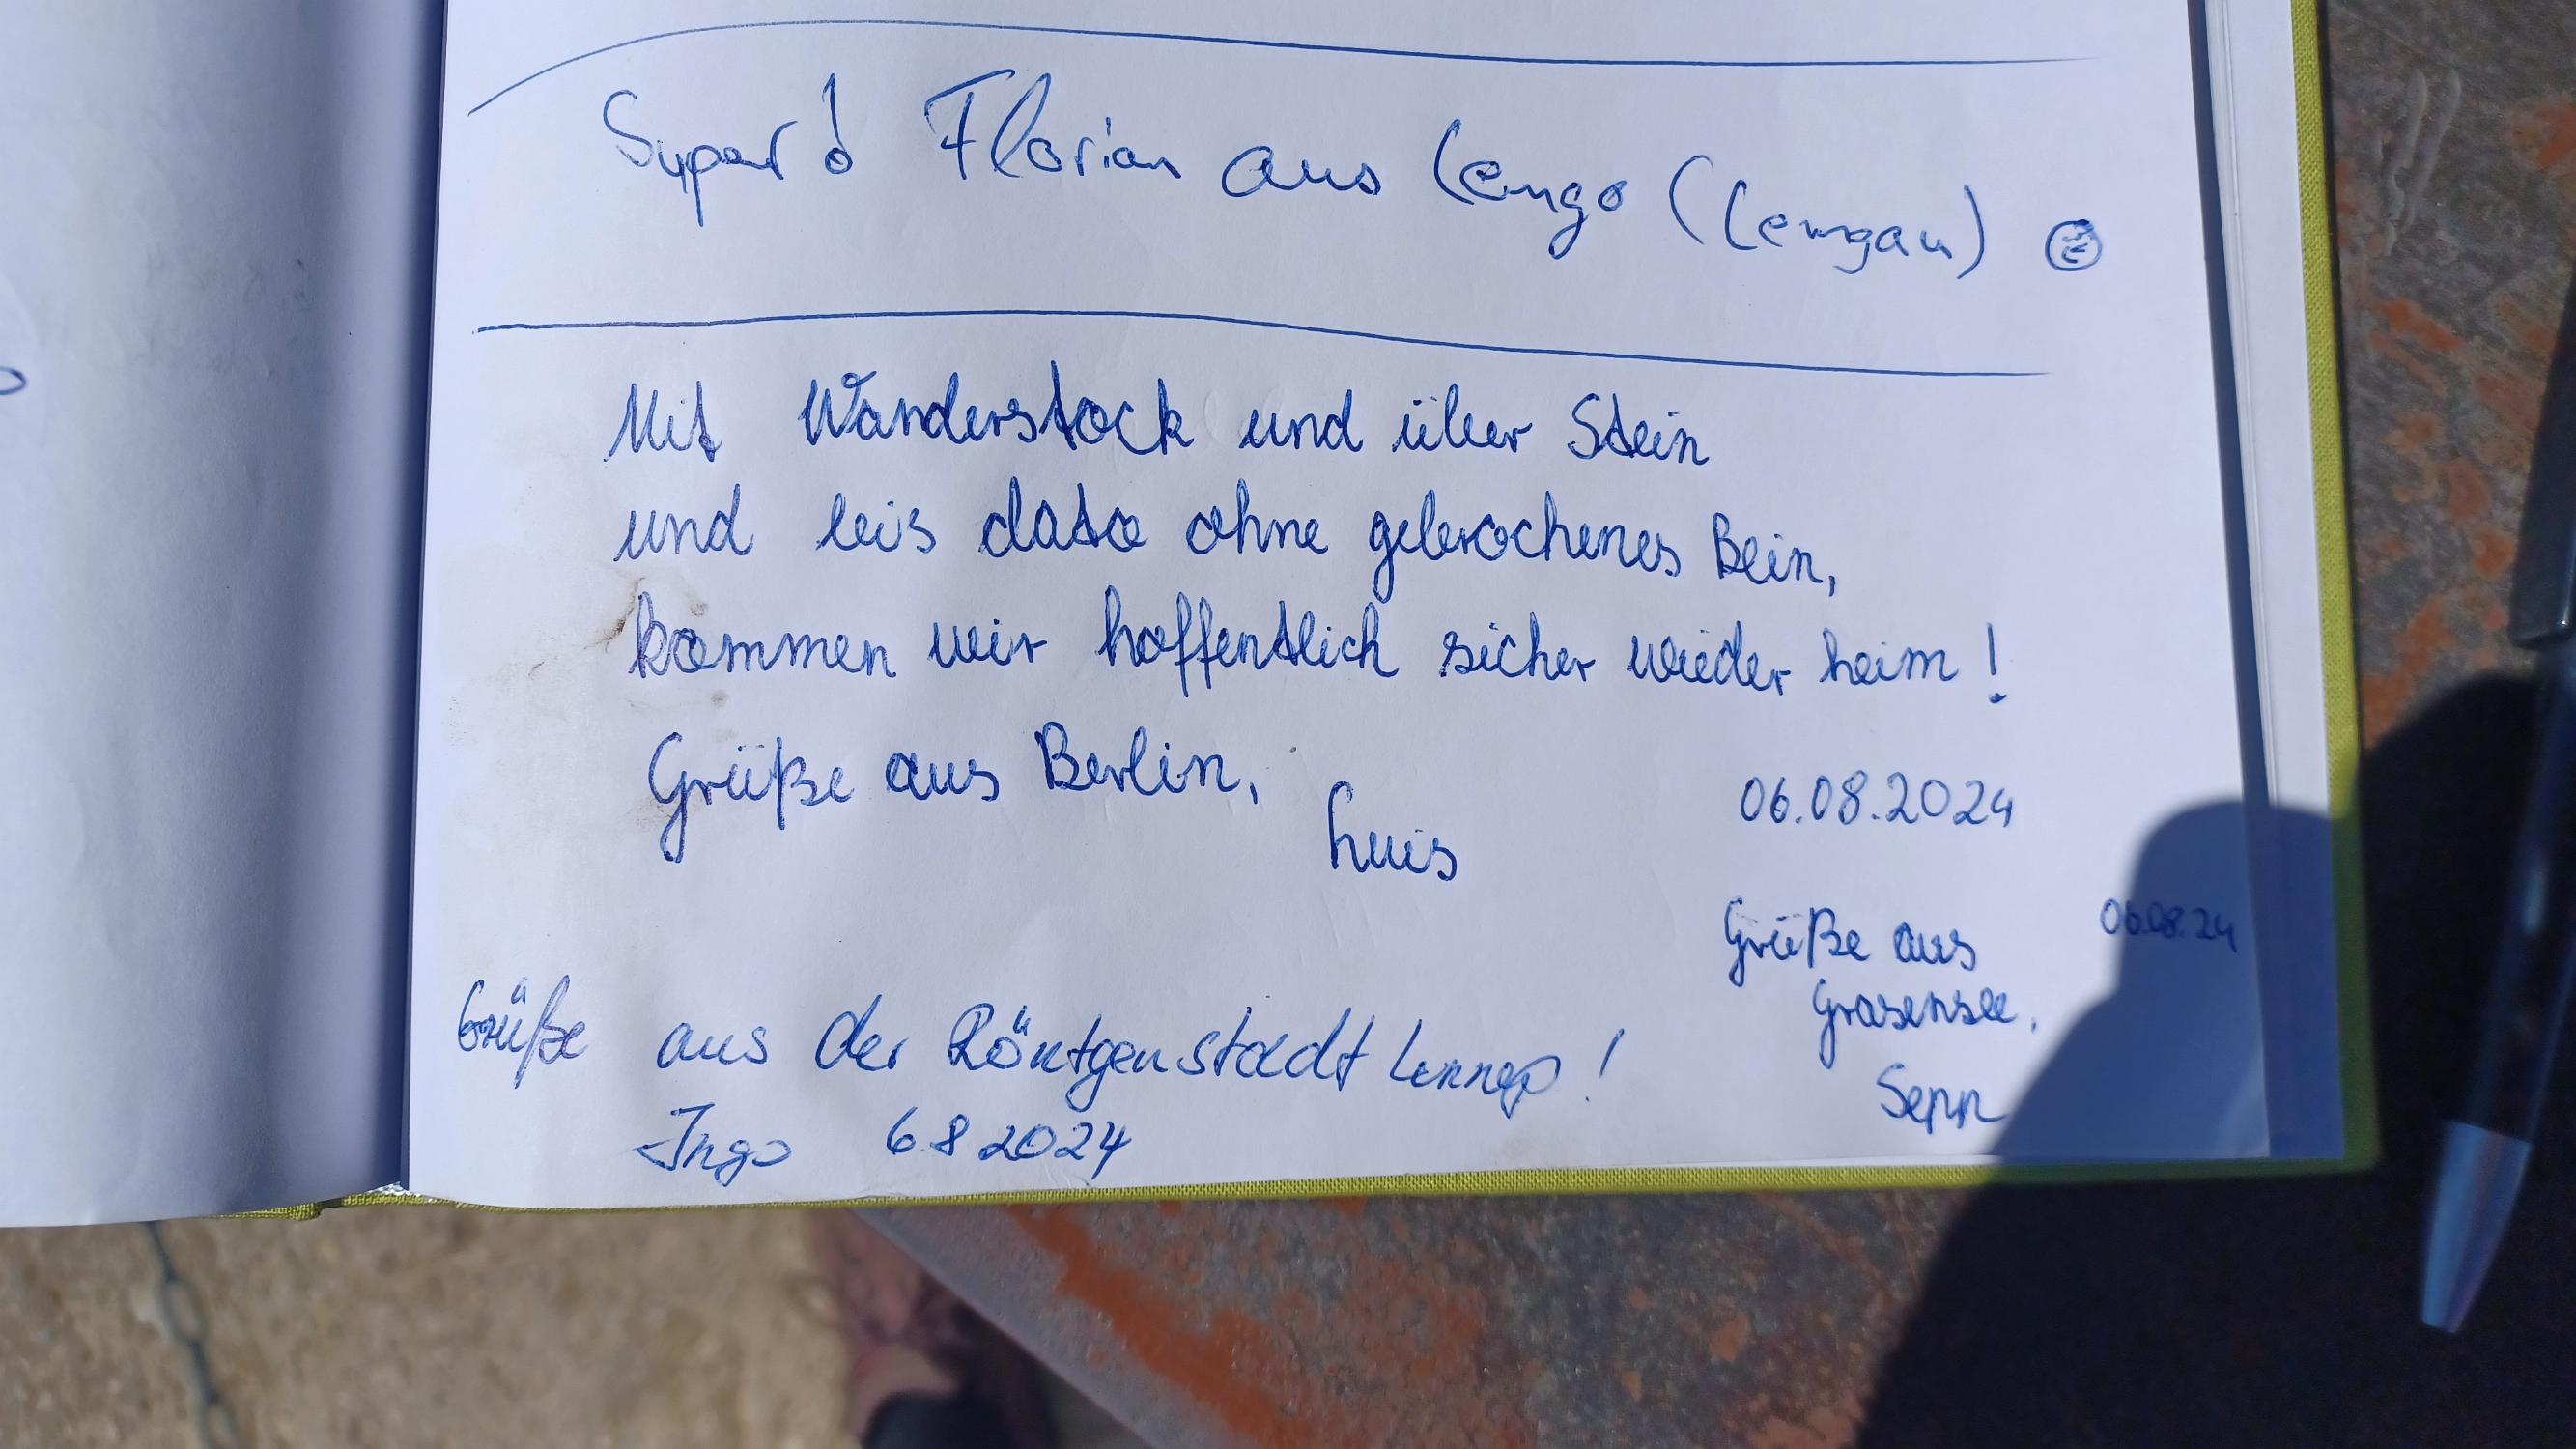 Super! Florian aus Lengo (Lengau)
Mit Wanderstock und über Stein
und bis dato ohne gebrochenes Bein,
kommen wir hoffentlich sicher wieder heim!
Grüße aus Berlin,
06.08.2024
Luis
Grüße aus
06.08.24
Grasensee,
Sepp
Grüße aus der Röntgenstadt Lennep!
Ingo 6.8.2024